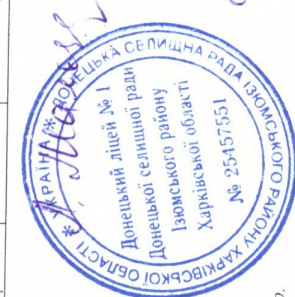 * УКРАЇНА * ДОНЕЦЬКА СЕЛИЩНА РАДА ІЗЮМСЬКОГО РАЙОНУ ХАРКІВСЬКОЇ ОБЛАСТІ
Донецький ліцей № 1
Донецької селищної ради
Ізюмського району
Харківської області
№ 25457551